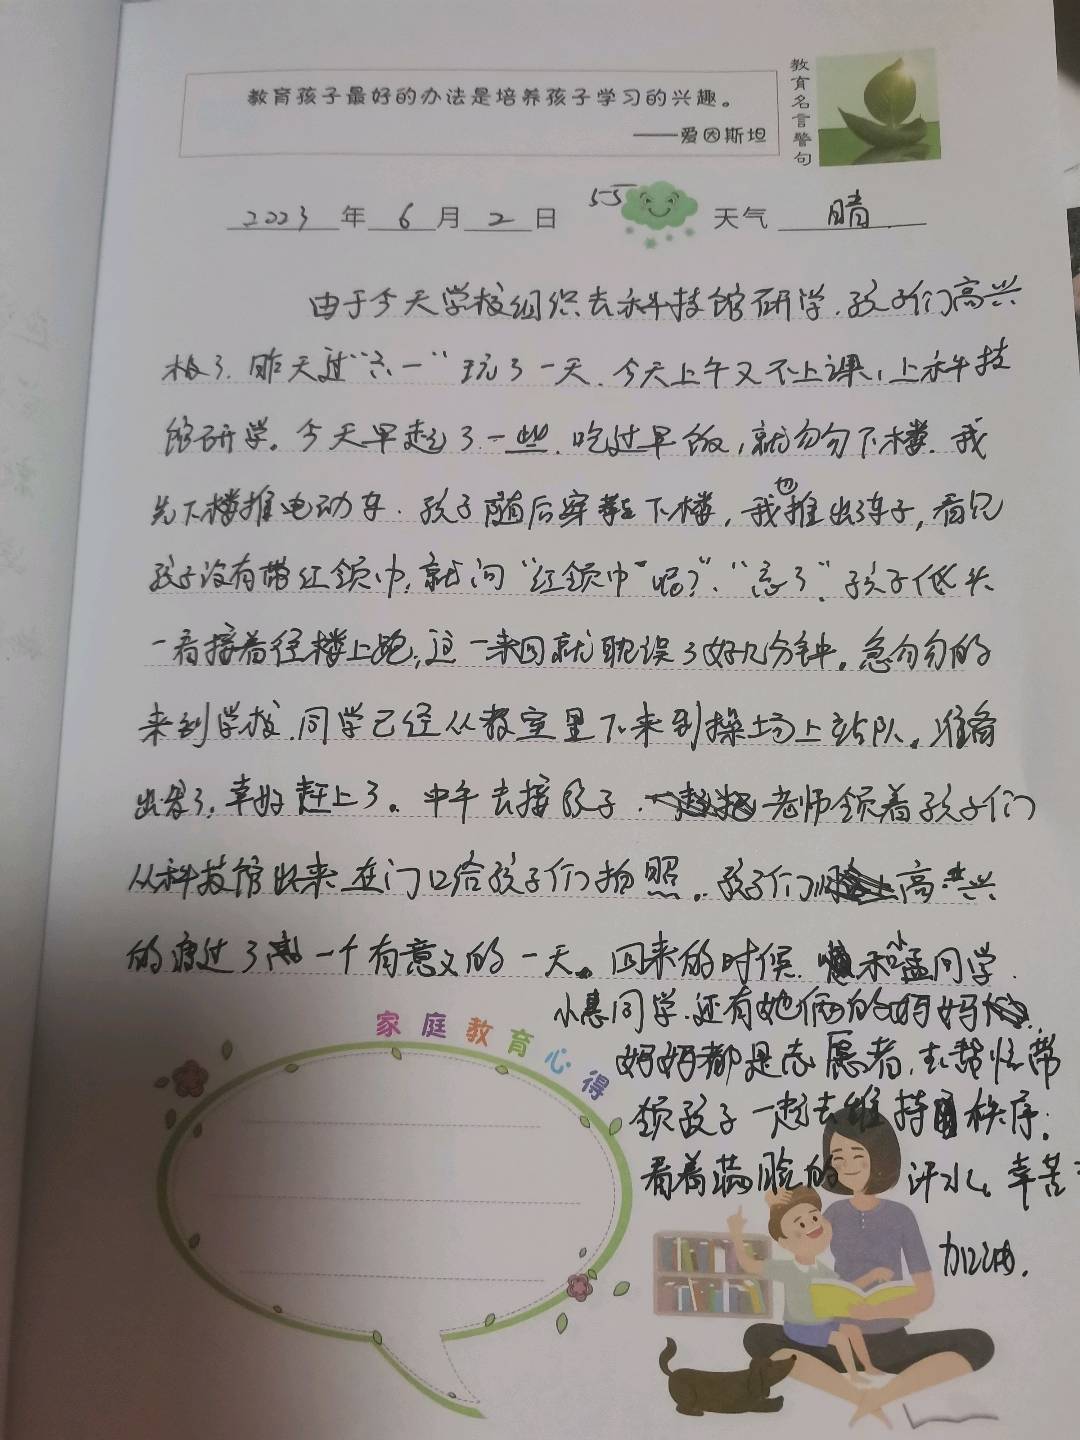 教育孩子最好的办法是培养孩子学习的兴趣。
——爱因斯坦
教育名言警句
2023年6月2日 55 天气 晴
由于今天学校组织去科技馆研学.孩子们高兴
极了.昨天过“六一”玩了一天.今天上午又不上课,上科技
馆研学。今天早起了一些.吃过早饭,就匆匆下楼.我
先下楼推电动车.孩子随后穿鞋下楼,我也推出了车子,看见
孩子没有带红领巾,就问“红领巾”呢?”“忘了”.孩子低头
一看接着往楼上跑,这一来回就耽误了好几分钟。急匆匆的
来到学校.同学已经从教室里下来到操场上站队。准备
出发了,幸好赶上了。中午去接孩子.老师领着孩子们
从科技馆出来在门口给孩子们拍照.孩子们高兴
的渡过了一个有意义的一天。回来的时候.和小孟同学.
小惠同学.还有她俩的妈妈
妈妈都是志愿者,去帮忙带
领孩子一起去维持秩序.
看着满脸的汗水。辛苦
加油.
家庭教育心得